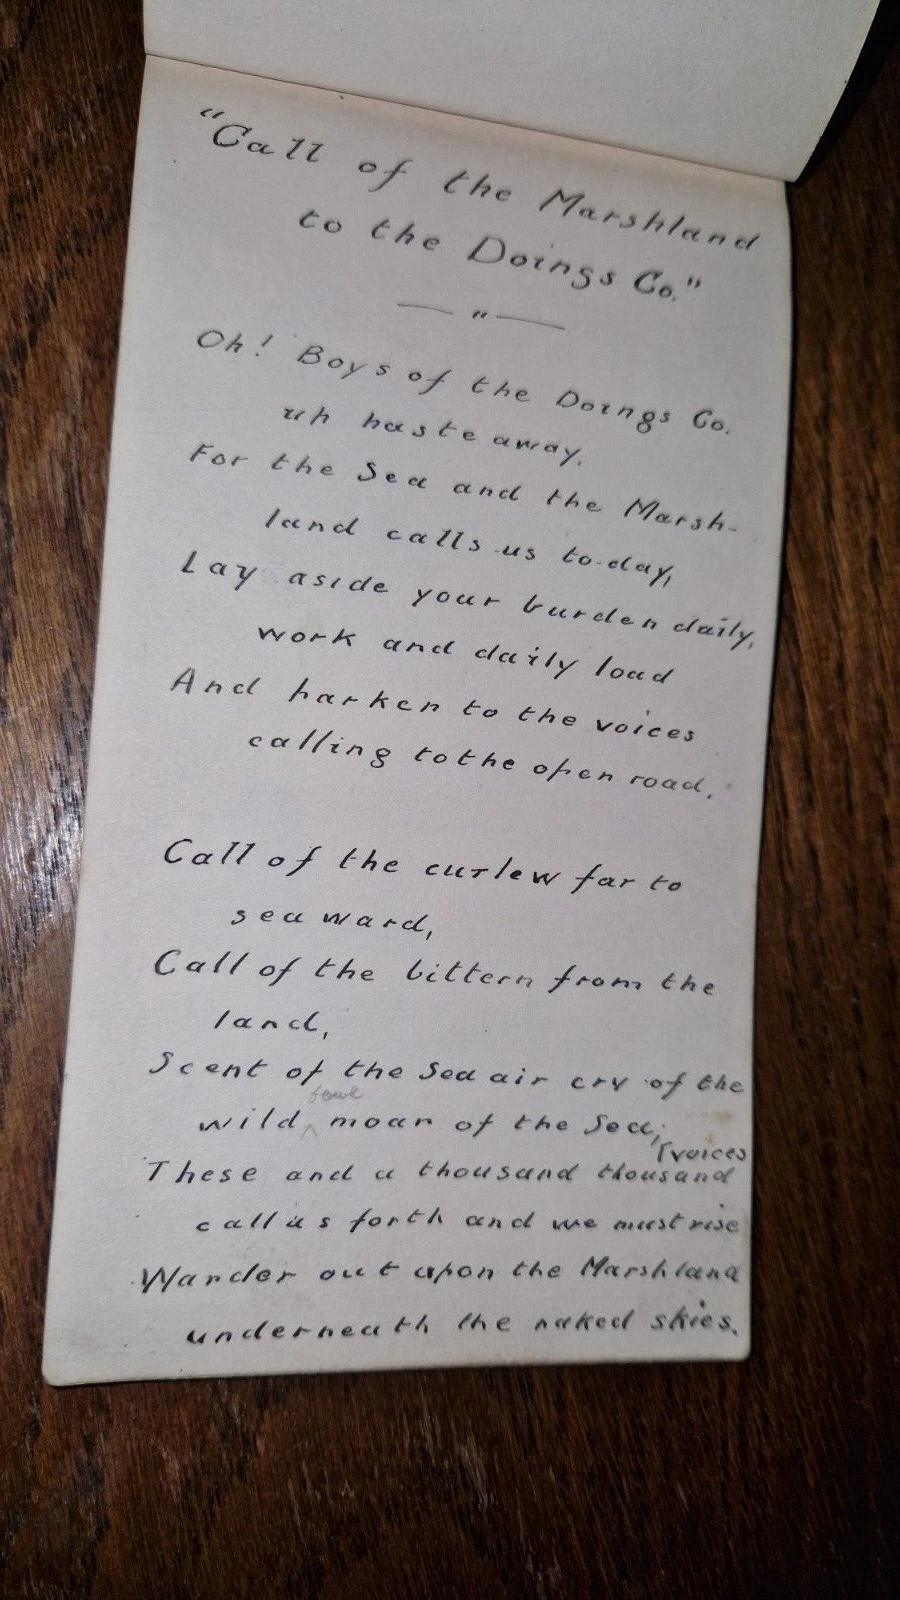 "Call of the Marshland
to the Doings Co."
— " —
Oh! Boys of the Doings Co.
up haste away.
For the Sea and the Marsh-
land calls us to-day,
Lay aside your burden daily,
work and daily load
And harken to the voices
calling to the open road.
Call of the curlew far to
sea ward,
Call of the bittern from the
land,
Scent of the Sea air cry of the
fowl
wild ^ moan of the Sea;
[voices
These and a thousand thousand
call us forth and we must rise
Wander out upon the Marshland
underneath the naked skies.